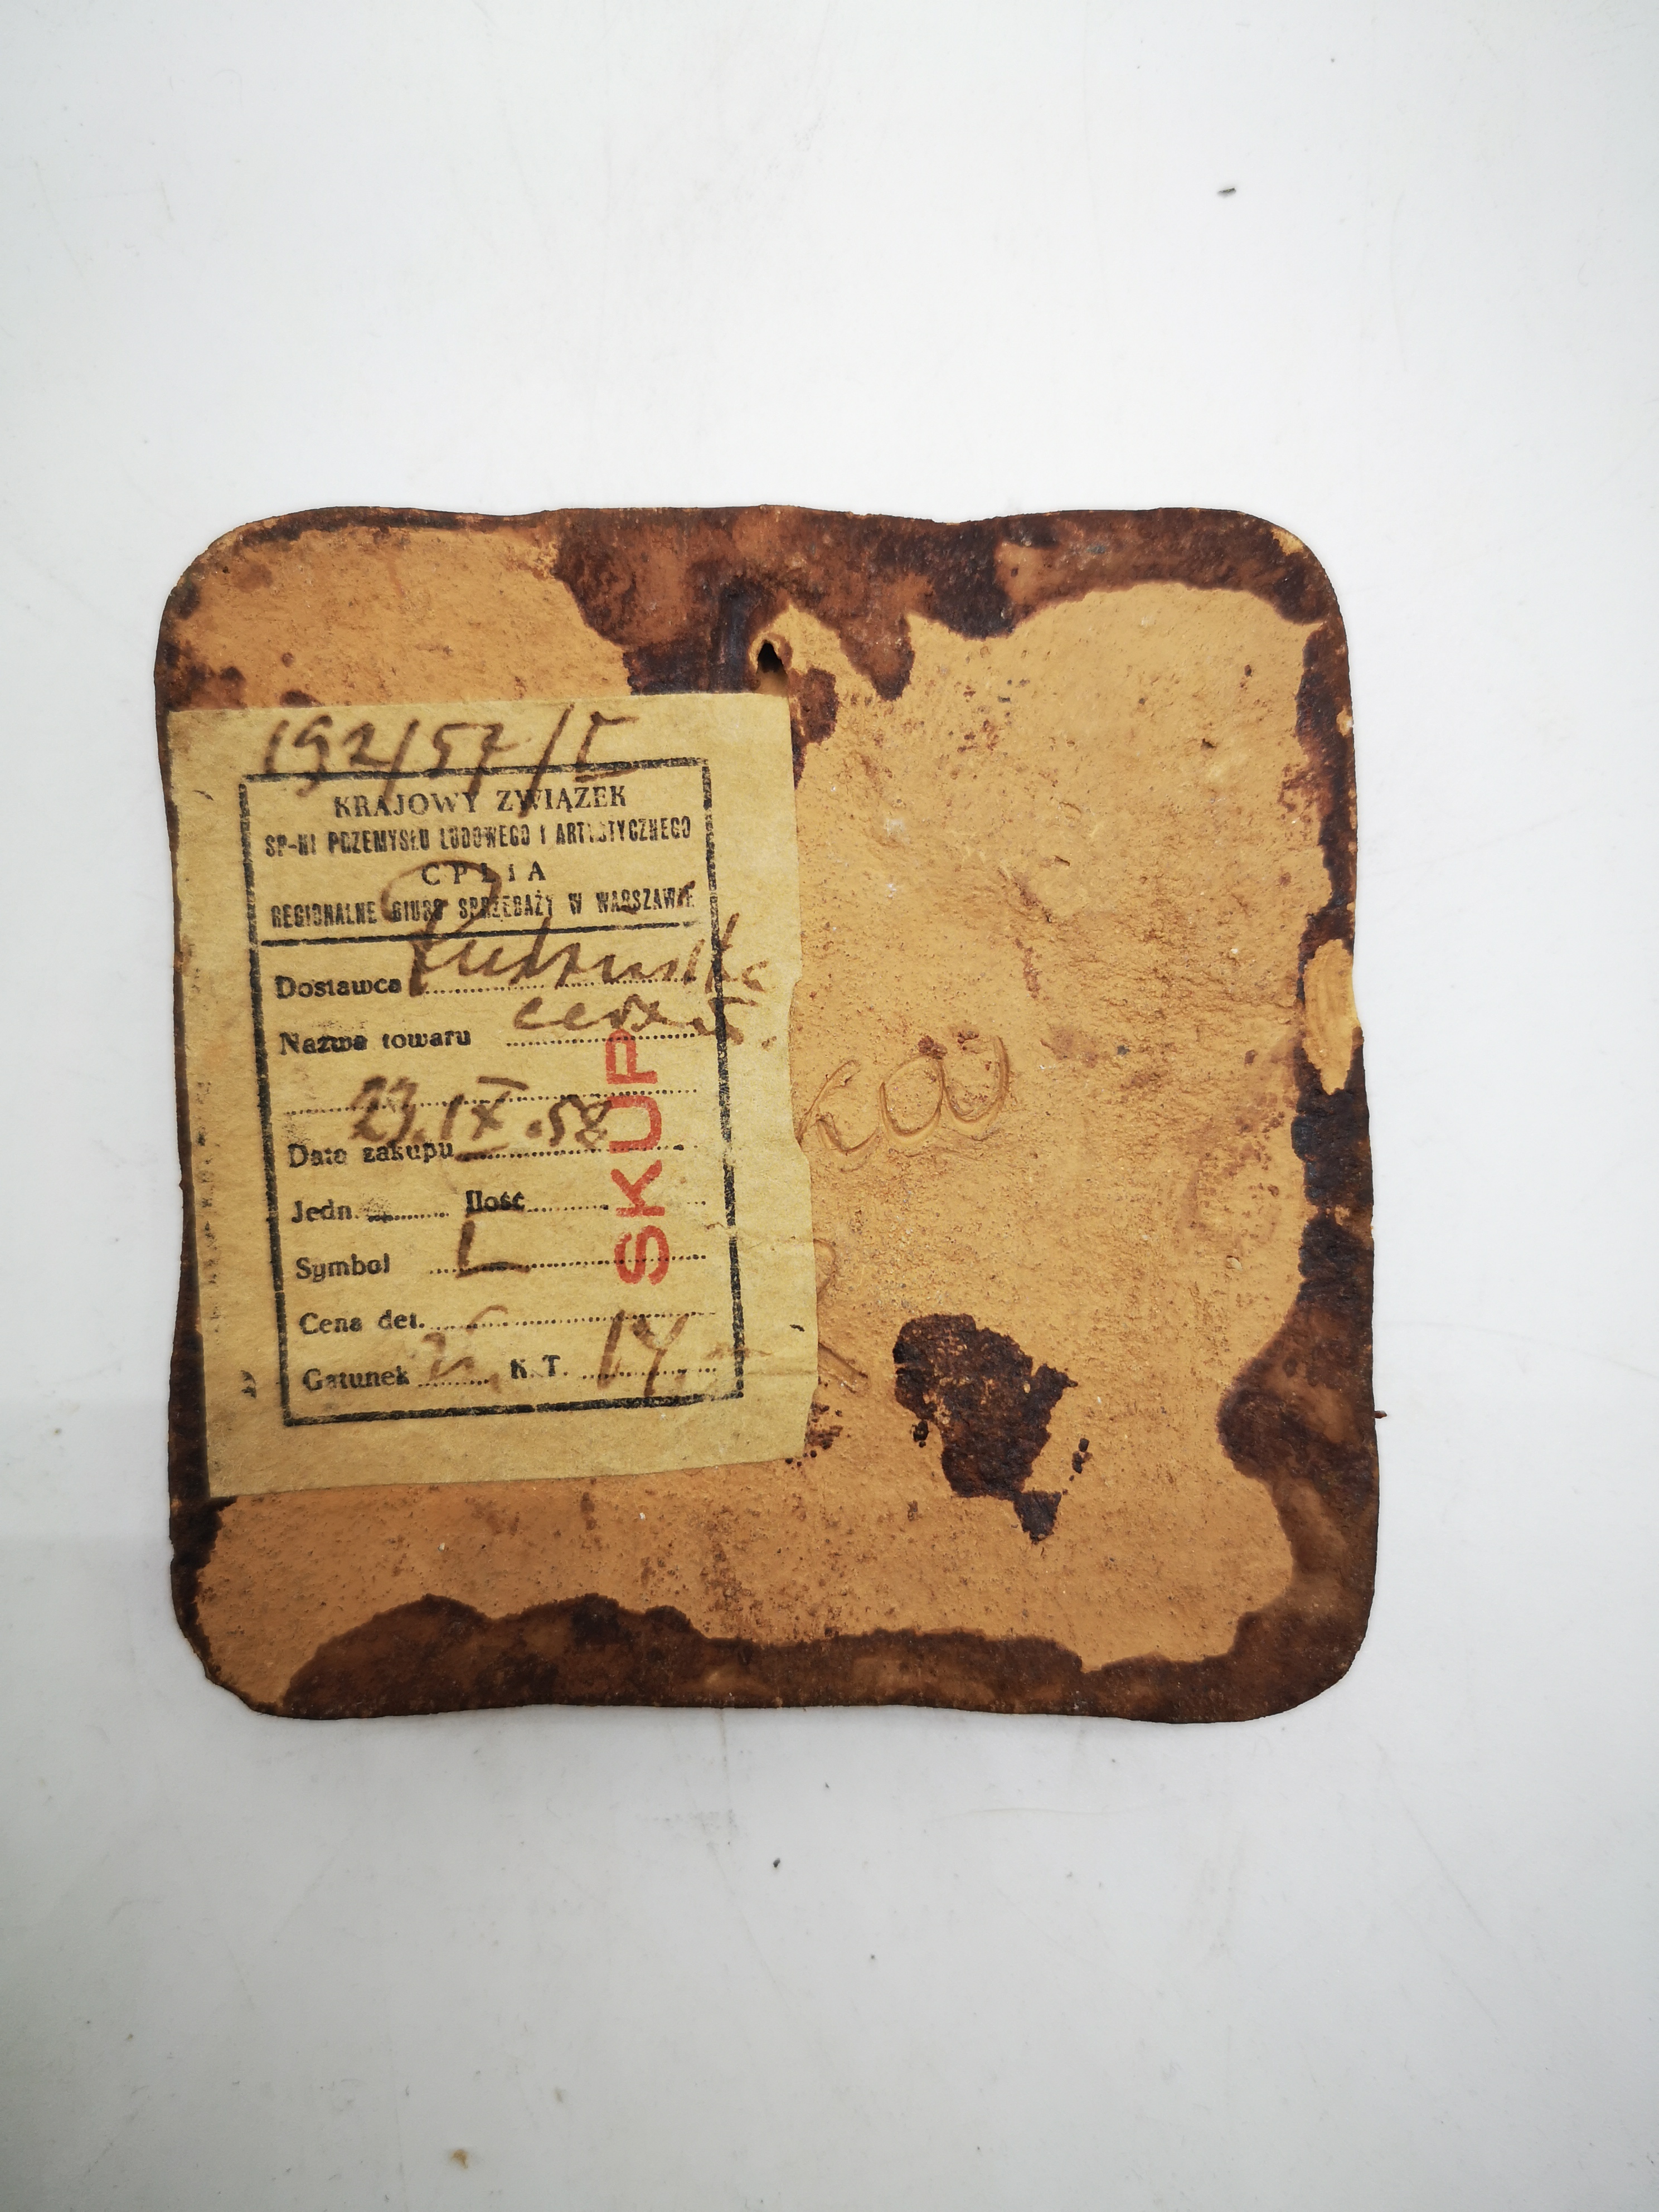 192/57/I
KRAJOWY ZWIĄZEK
SP-NI PRZEMYSŁU LUDOWEGO I ARTYSTYCZNEGO
C P L i A
REGIONALNE BIURO SPRZEDAŻY W WARSZAWIE
Dostawca
Nazwa towaru
23.IX.58
Data zakupu
Jedn. Ilość
Symbol L
Cena det.
Gatunek K.T. 14
SKUP
ka